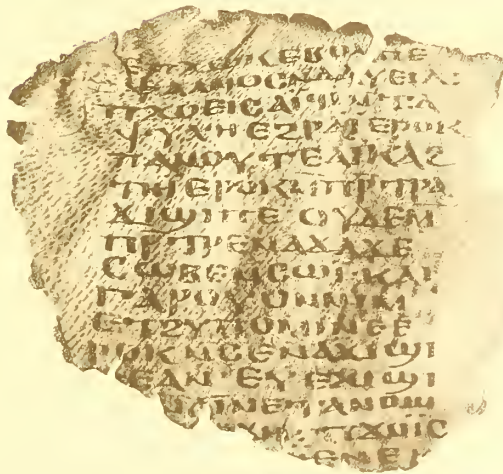 ⲱⲕ ⲉⲃⲟⲗ ⲡⲉ
ⲯⲁⲗⲙⲟⲥ ⲛⲇⲁⲩⲉⲓⲇ:
ⲡϫⲟⲉⲓⲥ ⲁⲓϥⲓ ⲛⲧⲁ
ⲯⲩⲭⲏ ⲉϩⲣⲁⲓ ⲉⲣⲟⲕ
ⲡⲁⲛⲟⲩⲧⲉ ⲁⲓⲕⲁϩ
ⲧⲏ ⲉⲣⲟⲕ ⲙⲡⲣⲧⲣⲁ
ϫⲓϣⲓⲡⲉ ⲟⲩⲇⲉ ⲙ
ⲡⲣⲧⲣⲉⲛⲁϫⲁϫⲉ
ⲥⲱⲃⲉ ⲛⲥⲱⲓ ⲕⲁⲓ
ⲅⲁⲣ ⲟⲩⲟⲛ ⲛⲓⲙ
ⲉⲧϩⲩⲡⲟⲙⲓⲛⲉ ⲉ
ⲣⲟⲕ ⲛⲥⲉⲛⲁϫⲓϣⲓ
ⲡⲉ ⲁⲛ ⲉⲩⲉϫⲓϣⲓ
ⲡϫⲟⲓⲥ